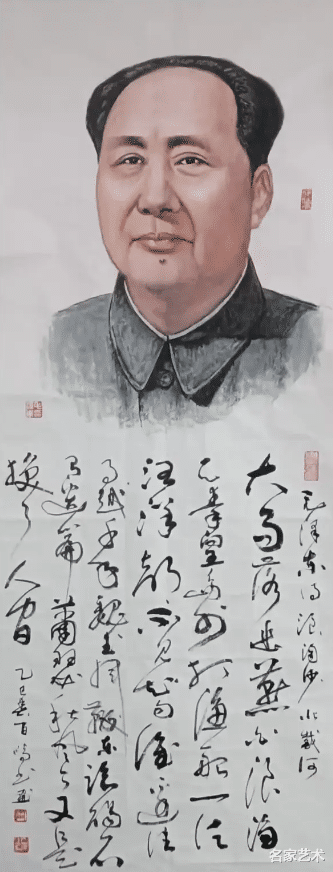 毛泽东词浪淘沙北戴河
大雨落幽燕白浪滔
天秦皇岛外打渔船一片
汪洋都不见知向谁边往
事越千年魏武挥鞭东临碣石
有遗篇萧瑟秋风今又是
换了人间
乙巳春百鸣书画
名家艺术